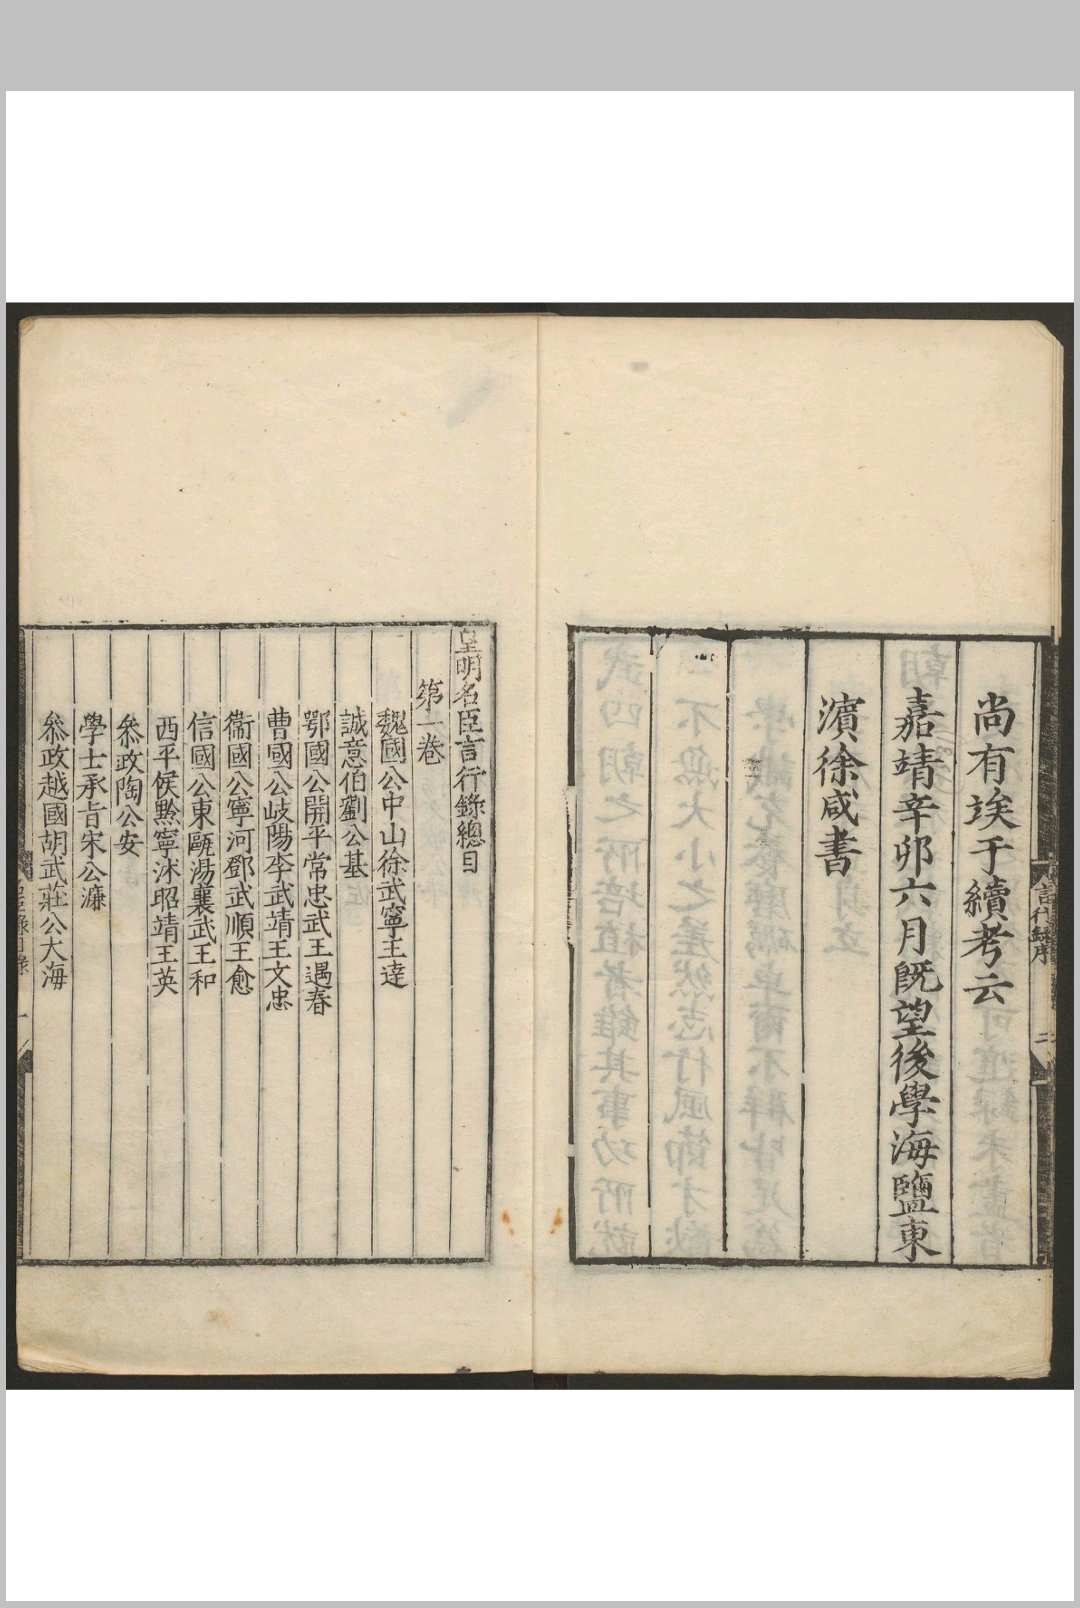 尚有竢于續考云
嘉靖辛卯六月旣望後學海鹽東
濱徐咸書
皇明名臣言行錄總目
第一卷
魏國公中山徐武寧王達
誠意伯劉公基
鄂國公開平常忠武王遇春
曹國公岐陽李武靖王文忠
衞國公寧河鄧武順王愈
信國公東甌湯襄武王和
西平侯黔寧沐昭靖王英
叅政陶公安
學士承旨宋公濂
叅政越國胡武莊公大海